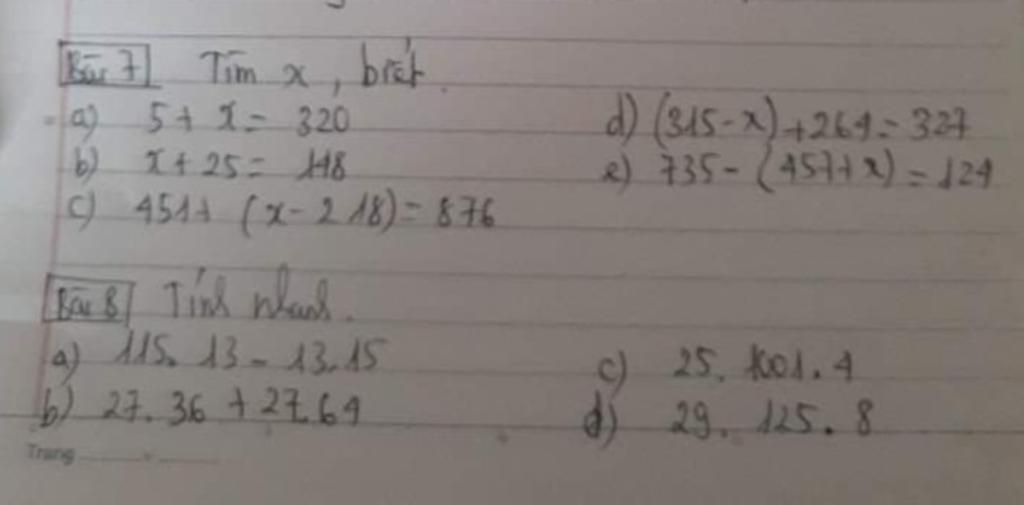 Bài 7 Tìm x, biết.
a) 5 + x = 320
d) (315 - x) + 264 = 327
b) x + 25 = 148
e) 735 - (457 + x) = 124
c) 451 + (x - 218) = 876
Bài 8 Tính nhanh.
a) 115. 13 - 13.15
c) 25. 1001. 4
b) 27. 36 + 27.64
d) 29. 125. 8
Trang